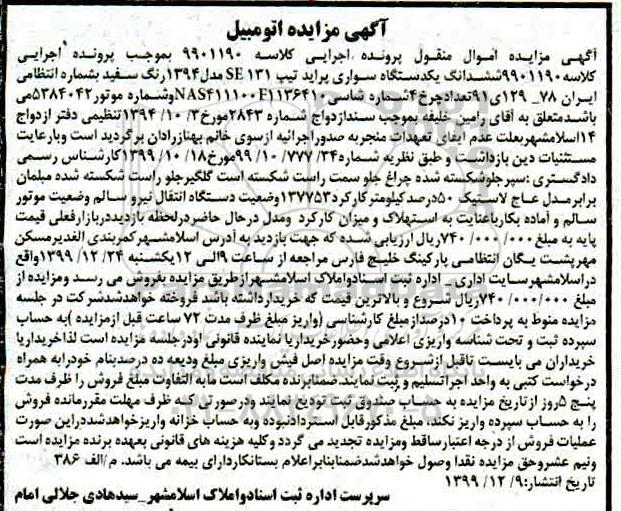 آگهی مزایده اتومبیل
آگهی مزایده اموال منقول پرونده اجرایی کلاسه ۹۹۰۱۱۹۰ بموجب پرونده اجرایی
کلاسه۹۹۰۱۱۹۰ششدانگ یکدستگاه سواری پراید تیپ SE ۱۳۱ مدل۱۳۹۴رنگ سفید بشماره انتظامی
ایران ۷۸_ ۱۲۹ی۹۱تعدادچرخ۴شماره شاسیNAS۴۱۱۱۰۰F۱۱۳۶۴۱۰وشماره موتور۵۳۸۴۰۴۲می
باشدمتعلق به آقای رامین خلیفه بموجب سندازدواج شماره ۲۸۴۳مورخ۳/ ۱۰/ ۱۳۹۴تنظیمی دفتر ازدواج
۱۴اسلامشهربعلت عدم ایفای تعهدات منجربه صدوراجرائیه ازسوی خانم بهنازرادان برگردید است وبارعایت
مستثنیات دین بازداشت و طبق نظریه شماره۳۴/ ۷۷۷/ ۱۰/ ۹۹مورخ۱۸/ ۱۰/ ۱۳۹۹کارشناس رسمی
دادگستری :سپرجلوشکسته شده چراغ جلو سمت راست شکسته است گلگیرجلو راست شکسته شده مبلمان
برابرمدل عاج لاستیک ۵۰درصدکیلومترکارکرد۱۳۷۷۵۳وضعیت دستگاه انتقال نیرو سالم وضعیت موتور
سالم و آماده بکارباعنایت به استهلاک و میزان کارکرد ومدل درحال حاضردرلحظه بازدیددربازارفعلی قیمت
پایه به مبلغ۷۴۰/۰۰۰/۰۰۰ریال ارزیابی شده که جهت بازدید به آدرس اسلامشهرکمربندی الغدیرمسکن
مهرپشت یگان انتظامی پارکینگ خلیج فارس مراجعه از ساعت ۹الی ۱۲یکشنبه ۲۴/ ۱۲/ ۱۳۹۹واقع
دراسلامشهرسایت اداری_ اداره ثبت اسنادواملاک اسلامشهرازطریق مزایده بفروش می رسد ومزایده از
مبلغ ۷۴۰/۰۰۰/۰۰۰ریال شروع و بالاترین قیمت که خریدارداشته باشد فروخته خواهدشدشرکت در جلسه
مزایده منوط به پرداخت ۱۰درصدازمبلغ کارشناسی (واریز مبلغ ظرف مدت ۷۲ ساعت قبل ازمزایده )به حساب
سپرده ثبت و تحت شناسه واریزی اعلامی وحضورخریداریا نماینده قانونی اودرجلسه مزایده است لذاخریداریا
خریداران می بایست تاقبل ازشروع وقت مزایده اصل فیش واریزی مبلغ ودیعه ده درصدبنام خودرابه همراه
درخواست کتبی به واحد اجراتسلیم و ثبت نمایند.ضمنابرنده مکلف است مابه التفاوت مبلغ فروش را ظرف مدت
پنج ۵روز ازتاریخ مزایده به حساب صندوق ثبت تودیع نمایند ودرصورتی که ظرف مهلت مقررمانده فروش
را به حساب سپرده واریز نکند، مبلغ مذکورقابل استردادنبوده وبه حساب خزانه واریزخواهدشددراین صورت
عملیات فروش از درجه اعتبارساقط ومزایده تجدید می گردد وکلیه هزینه های قانونی بعهده برنده مزایده است
ونیم عشروحق مزایده نقدا وصول خواهدشدضمنابنابراعلام بستانکاردارای بیمه می باشد. م/الف ۳۸۶
تاریخ انتشار:۹/ ۱۲/ ۱۳۹۹
سرپرست اداره ثبت اسنادواملاک اسلامشهر_سیدهادی جلالی امام